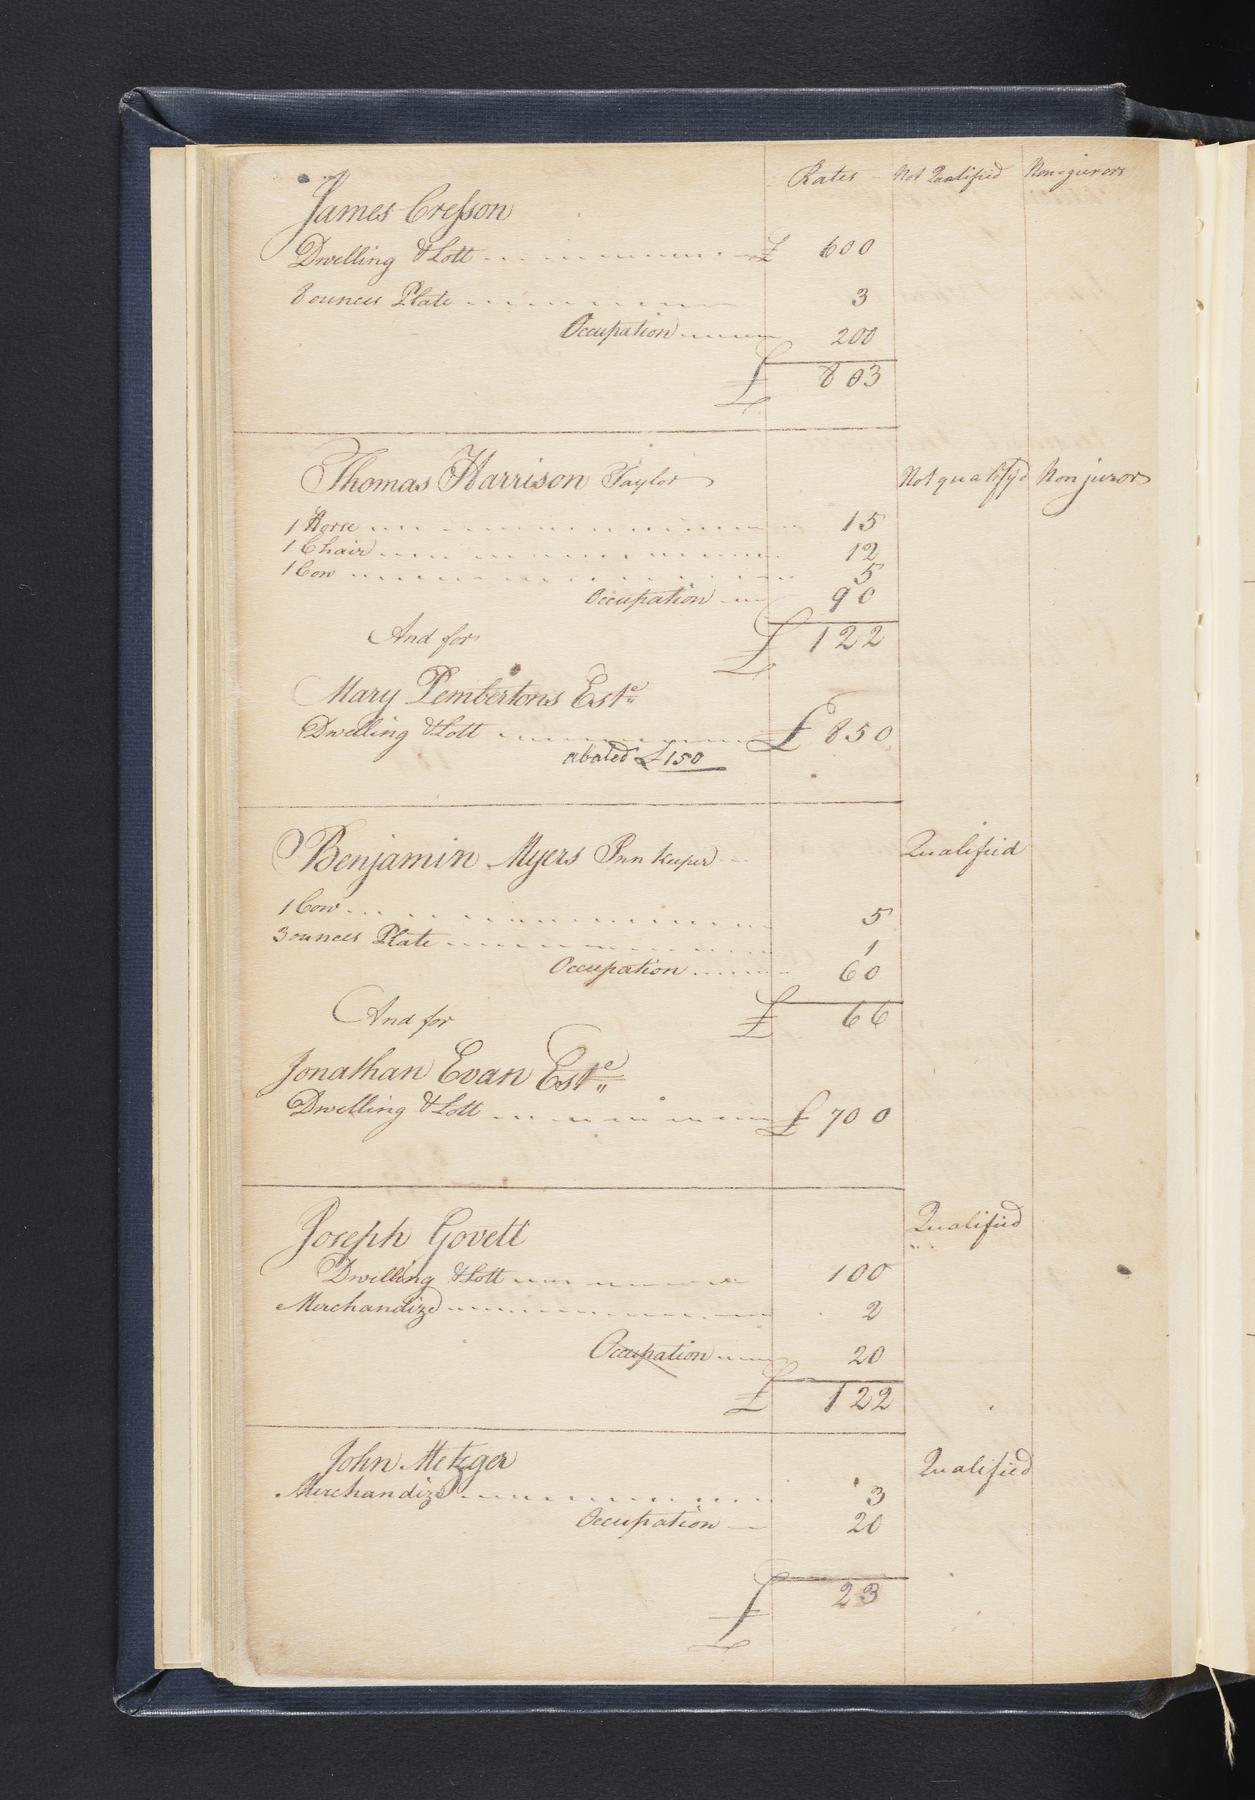 Rates Not Qualified Non-jurors
James Cresson
Dwelling & Lott £ 600
8 ounces Plate 3
Occupation 200
£ 803
Thomas Harrison Taylor Not qualifyd Non juror
1 Horse 15
1 Chair 12
1 Cow 5
Occupation 90
And for £ 122
Mary Pembertons Este
Dwelling & Lott £ 850
abated £ 150
Benjamin Myers Inn keeper Qualified
1 Cow 5
3 ounces Plate 1
Occupation 60
And for £ 66
Jonathan Evan Este
Dwelling & Lott £ 700
Joseph Govett Qualified
Dwelling & Lott 100
Merchandize 2
Occupation 20
£ 122
John Metzger Qualified
Merchandize 3
Occupation 20
£ 23